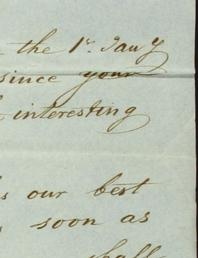 the 1st. Jany
since your
interesting
our best
soon as
shall